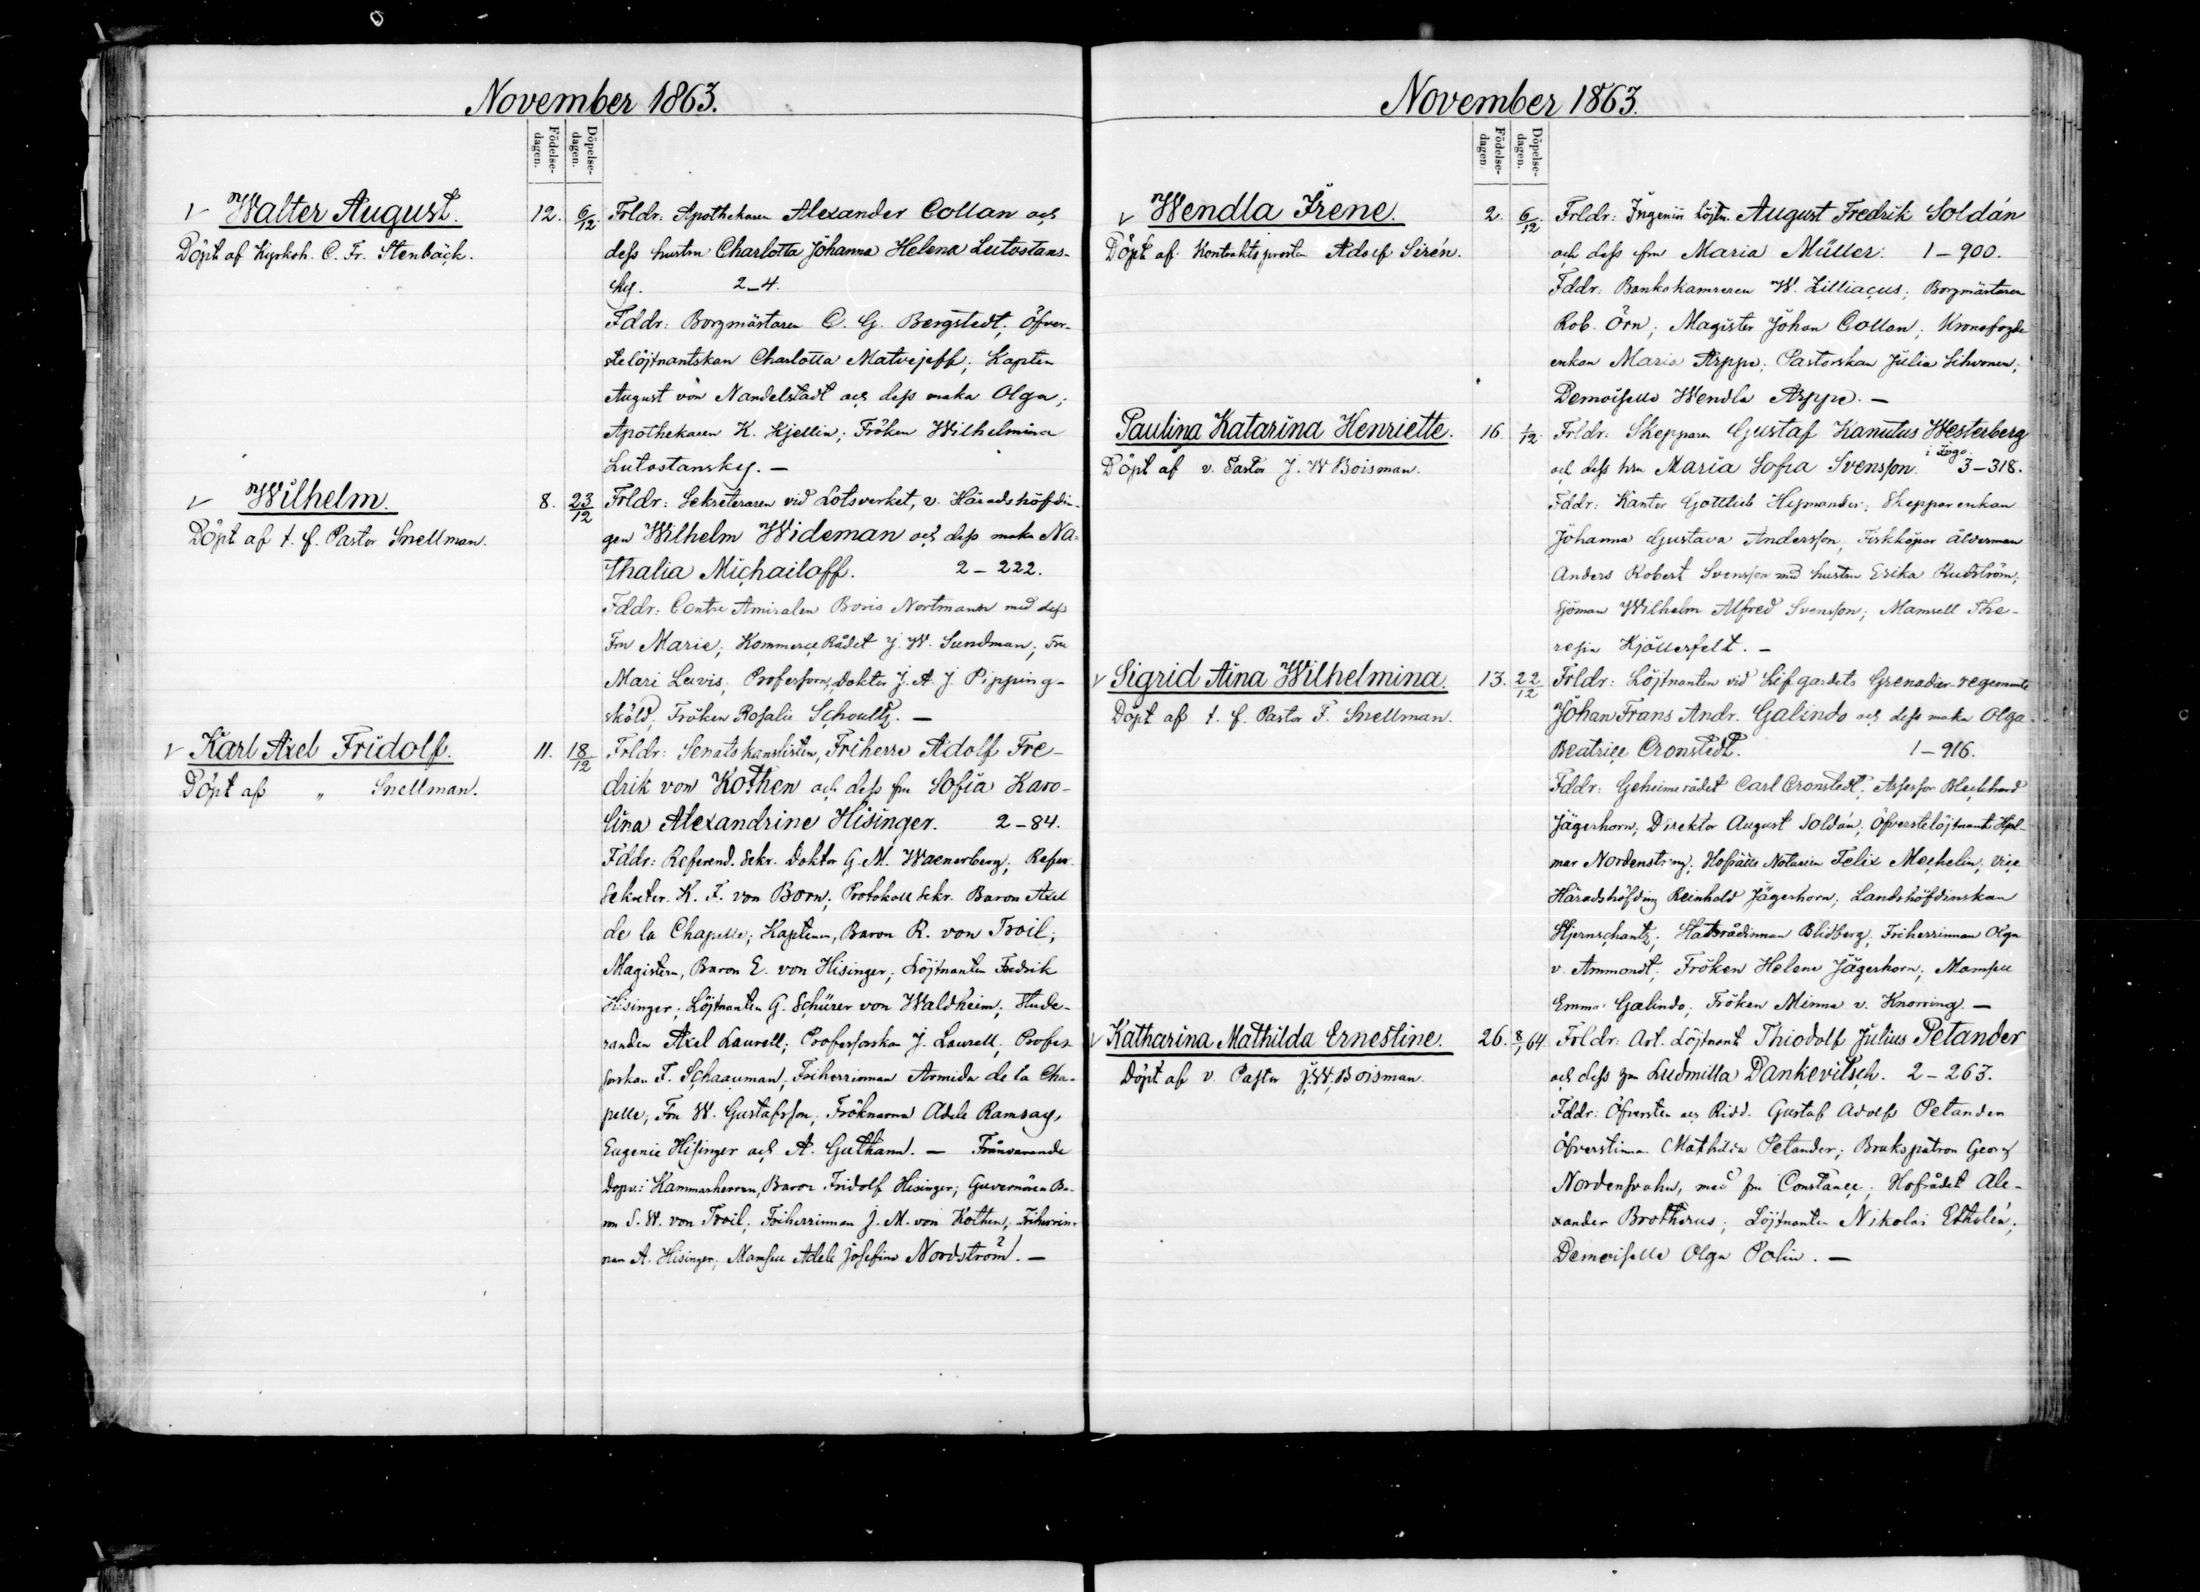 November 1863.
Födelse-
dagen.
Döpelse-
dagen.
Walter August.
Döpt af Kyrkoh. C. Fr. Stenbäck.
12. 6/12
Frldr: Apothekaren Alexander Collan och
dess hustru Charlotta Johanna Helena Lutostans-
ky. 2–4.
Fddr: Borgmästaren C. G. Bergstedt; Öfver-
stelöjtnantskan Charlotta Matvejeff; Kapten
August von Nandelstadt och dess maka Olga;
Apothekaren K. Kjellin; Fröken Wilhelmina
Lutostansky. —
Wilhelm.
Döpt af t. f. Pastor Snellman.
8. 23/12
Frldr: Sekreteraren vid Lotsverket, v. Häradshöfdin-
gen Wilhelm Wideman och dess maka Na-
thalia Michailoff. 2–222.
Fddr: Contre Amiralen Boris Nortmann med dess
Fru Marie; Kommerce Rådet J. W. Sundman; Fru
Mari Levis; Professorn, Doktor J. A. J. Pipping-
sköld; Fröken Rosalie Schoultz. —
Karl Axel Fridolf.
Döpt af „ Snellman.
11. 18/12
Frldr: Senatskanslisten, Friherre Adolf Fre-
drik von Kothen och dess fru Sofia Karo-
lina Alexandrine Hisinger. 2–84.
Fddr: Referend. Sekr. Doktor G. M. Waenerberg; Refer.
Sekreter. K. F. von Born; Protokoll Sekr. Baron Axel
de la Chapelle; Kaptenen, Baron R. von Troil;
Magistern, Baron E. von Hisinger; Löjtnanten Fredrik
Hisinger; Löjtnanten G. Schürer von Waldheim; Stude-
randen Axel Laurell; Professorskan J. Laurell; Profes-
sorskan F. Schaauman; Friherrinnan Armida de la Cha-
pelle; Fru W. Gustafsson; Fröknarna Adele Ramsay,
Eugenie Hisinger och A. Guthard. — Frånvarande
Dopv.: Kammarherren, Baron Fridolf Hisinger; Guvernören Ba-
ron S. W. von Troil; Friherrinnan J. M. von Kothen; Friherrin-
nan A. Hisinger; Mamsell Adele Josefina Nordström. —
November 1863.
Födelse-
dagen.
Döpelse-
dagen.
Wendla Irene.
Döpt af Kontraktsprosten Adolf Sirén.
2. 6/12
Frldr: Ingeniör Löjtn. August Fredrik Soldán
och dess fru Maria Müller: 1–900.
Fddr: Bankokamreren W. Zilliacus; Borgmästaren
Rob. Örn; Magister Johan Collan; Kronofogde
enkan Maria Arppe; Pastorskan Julia Sihvonen;
Demoiselle Wendla Arppe. —
Paulina Katarina Henriette.
Döpt af v. Pastor J. W. Boisman.
16. 1/12
Frldr: Skepparen Gustaf Kanutus Westerberg
och dess hru Maria Sofia Svensson. 3–318.
Fddr: Kantor Gottlieb Hymander; Skepparenkan
Johanna Gustava Andersson; Fiskköpar ålderman
Anders Robert Svensson med hustru Erika Rudström;
Sjöman Wilhelm Alfred Svensson; Mamsell The-
resia Hjöllerfelt. —
Sigrid Aina Wilhelmina.
Döpt af t. f. Pastor F. Snellman.
13. 22/12
Frldr: Löjtnanten vid Lifgardets Grenadier regemente
Johan Frans Andr. Galindo och dess maka Olga
Beatrice Cronstedt. 1–916.
Fddr: Geheimerådet Carl Cronstedt; Assessor Blechard
Jägerhorn; Direktor August Soldán; Öfverstelöjtnant Hjal-
mar Nordenstreng; Hofrätts Notarien Felix Mechelin; Vice
Häradshöfding Reinhold Jägerhorn; Landshöfdinskan
Stjernschantz; Statsrådinnan Blidberg; Friherrinnan Olga
v. Ammondt; Fröken Helene Jägerhorn; Mamsell
Emma Galindo; Fröken Minna v. Knorring —
Katharina Mathilda Ernestine.
Döpt af v. Pastor J. W. Boisman.
26. 8/1 64
Frldr: Art. Löjtnant Thiodolf Julius Petander
och dess fru Ludmilla Dankevitsch. 2–263.
Fddr: Öfversten och Ridd. Gustaf Adolf Petander
Öfverstinnan Mathilda Petander; Brukspatron Georg
Nordensvahn, med fru Constance; Hofrådet Ale-
xander Brotherus; Löjtnanten Nikolai Etholén;
Demoiselle Olga Polin. —